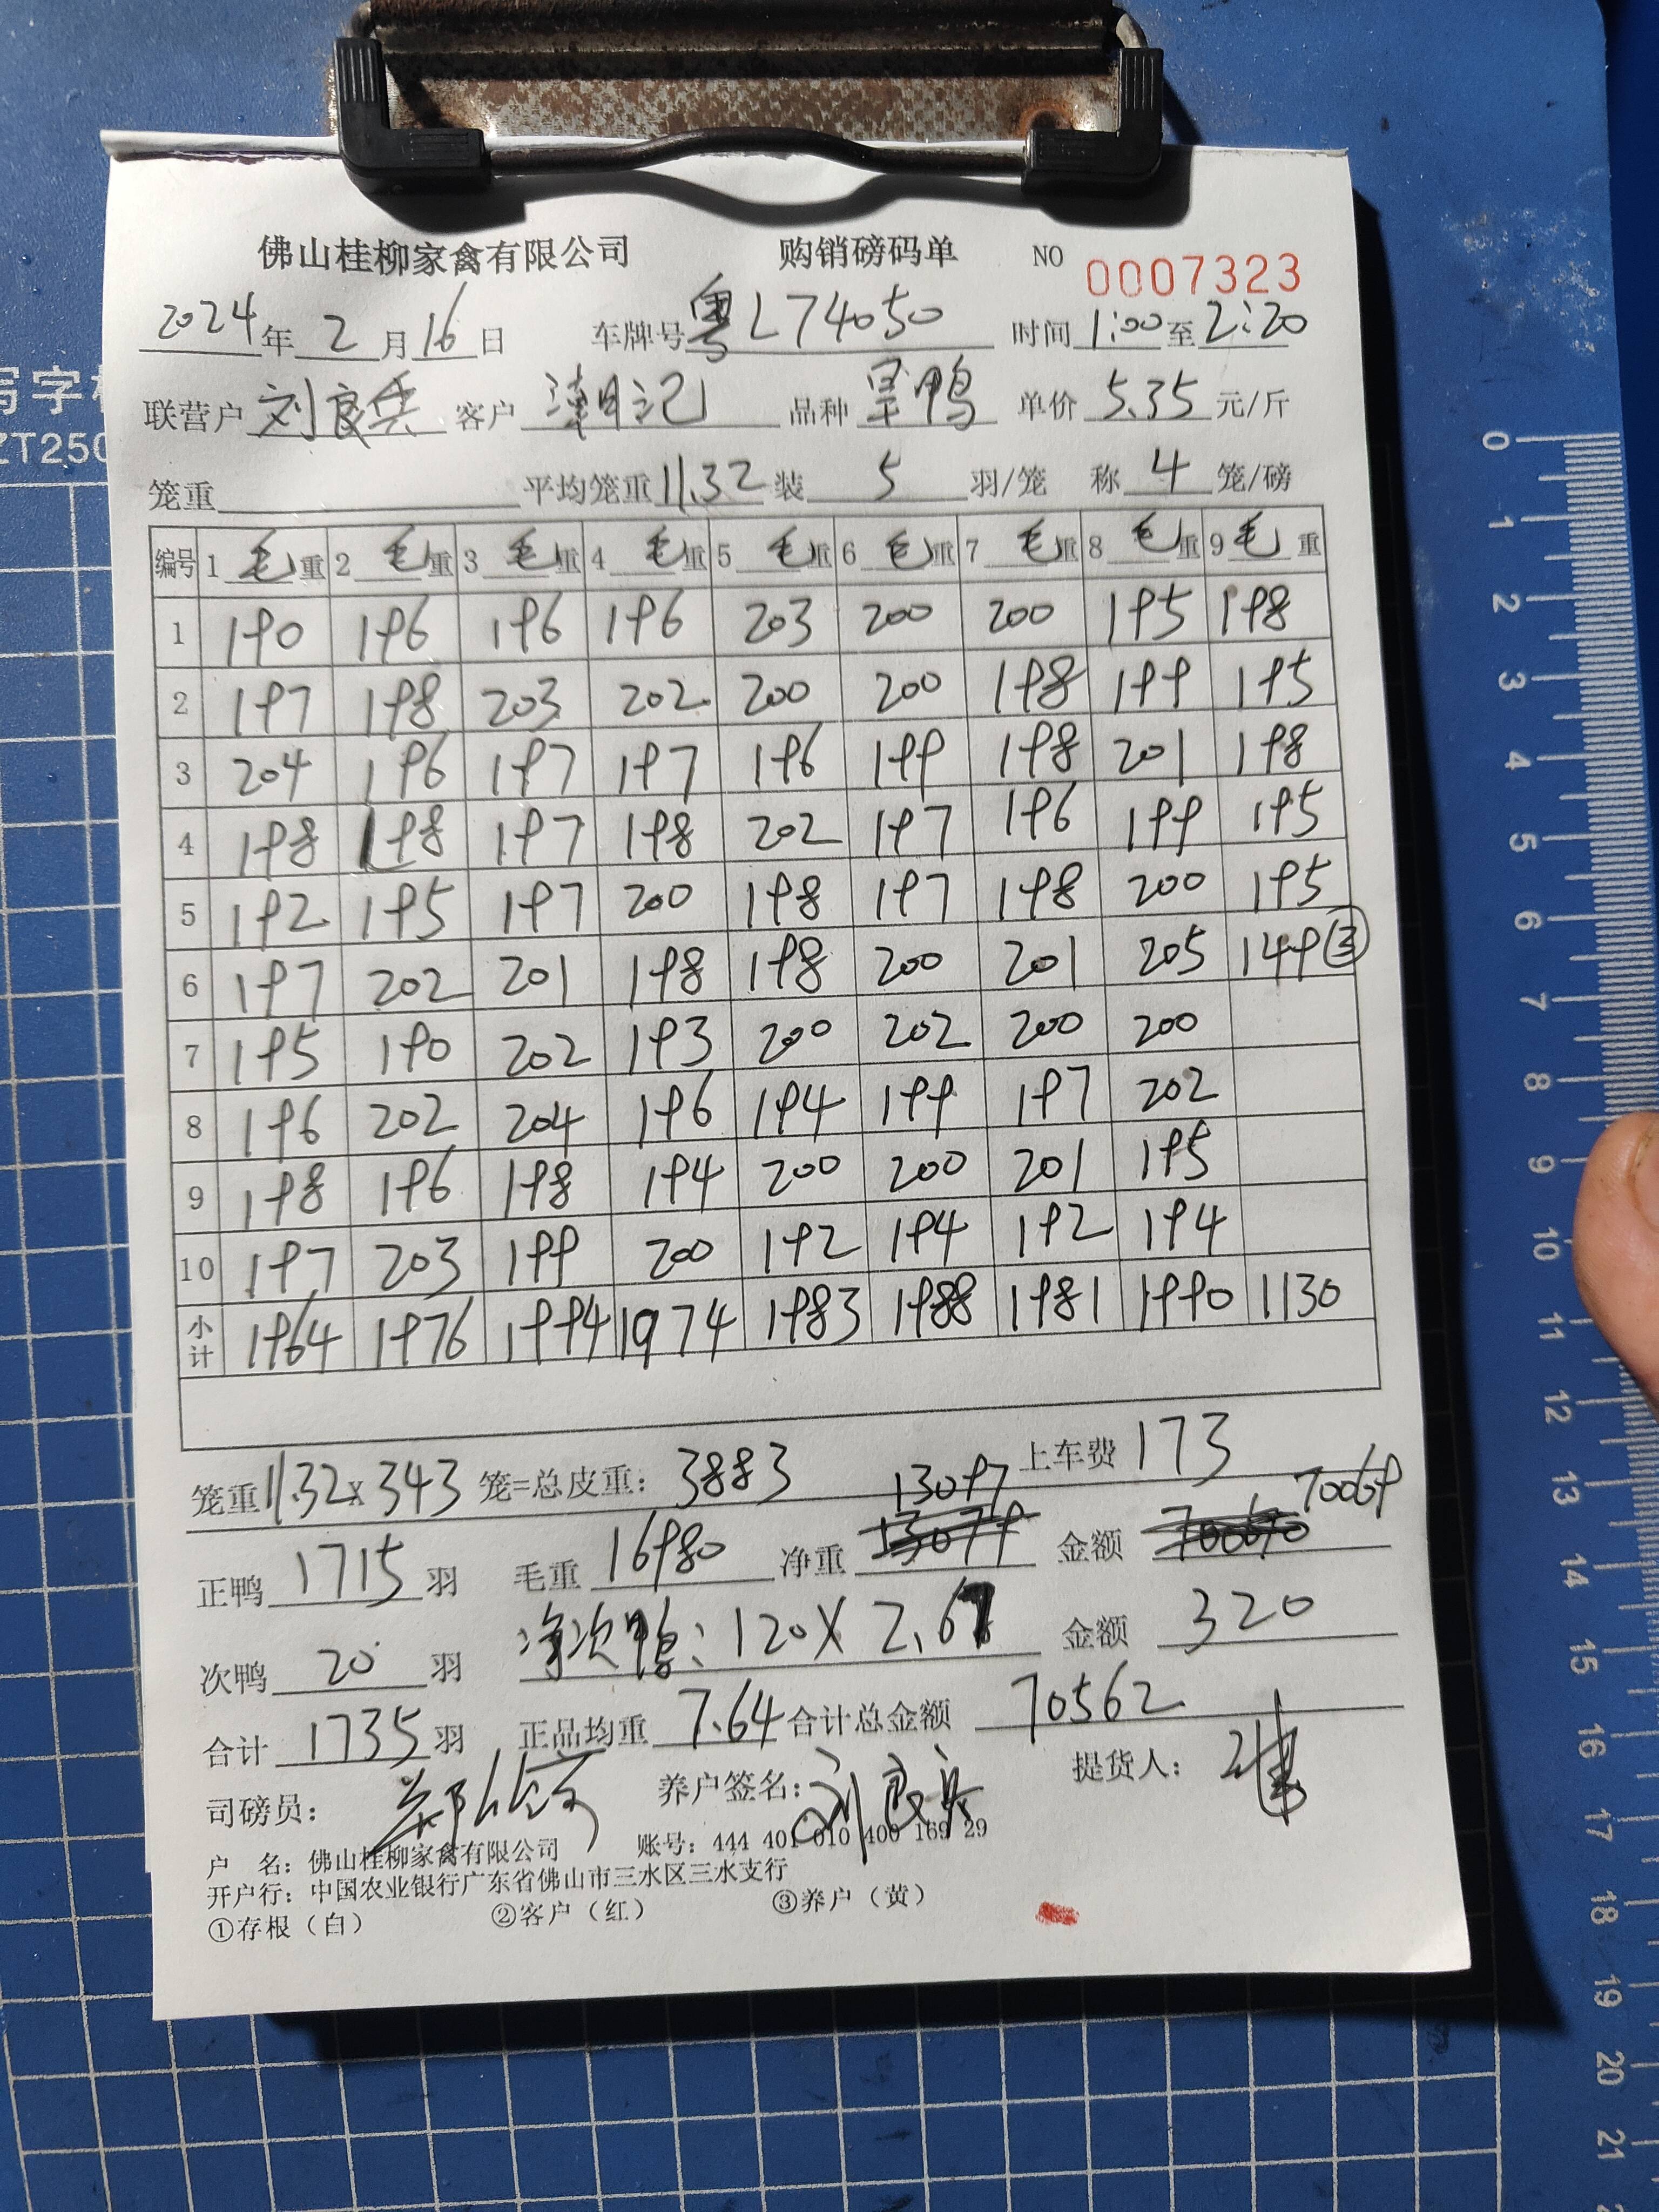 佛山桂柳家禽有限公司 购销磅码单 NO 0007323
2024年2月16日 车牌号粤L74050 时间1:00至2:20
联营户刘良兵 客户潮记 品种旱鸭 单价5.35元/斤
笼重 平均笼重11.32装5羽/笼 称4笼/磅
编号 1毛重 2毛重 3毛重 4毛重 5毛重 6毛重 7毛重 8毛重 9毛重
1 190 196 196 196 203 200 200 195 198
2 197 198 203 202 200 200 198 199 195
3 204 196 197 197 196 199 198 201 198
4 198 198 197 198 202 197 196 199 195
5 192 195 197 200 198 197 198 200 195
6 197 202 201 198 198 200 201 205 149③
7 195 190 202 193 200 202 200 200
8 196 202 204 196 194 199 197 202
9 198 196 198 194 200 200 201 195
10 197 203 199 200 192 194 192 194
小计 1964 1976 1994 1974 1983 1988 1981 1990 1130
笼重11.32x343笼=总皮重：3883 上车费173
13097 70069
正鸭1715羽 毛重16980 净重13079 金额700690
次鸭20羽 净次鸭：120X2.67 金额320
合计1735羽 正品均重7.64合计总金额70562
司磅员： 养户签名：刘良兵 提货人：
户 名：佛山桂柳家禽有限公司 账号：444 401 010 400 169 29
开户行：中国农业银行广东省佛山市三水区三水支行
①存根（白） ②客户（红） ③养户（黄）
写字板
ZT250
0
1
2
3
4
5
6
7
8
9
10
11
12
13
14
15
16
17
18
19
20
21